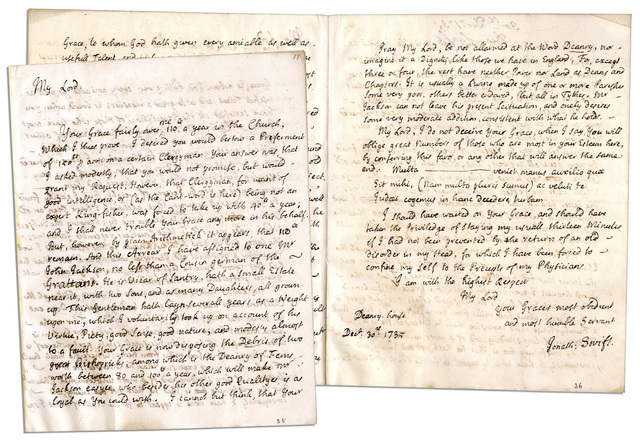 My Lord
Your Grace fairly owes me 110ˡ a year in the Church,
Which I thus prove. I desired you would bestow a Preferment
of 150ˡ p ann on a certain Clergyman. Your answer was, that
I asked modestly; that you would not promise, but would
grant my Request. However that Clergyman, for want of
good Intelligence, or (as the cant-word is here) being not an
expert King-fisher, was forced to take up with 40ˡ a year;
and I shall never trouble Your Grace any more in his behalf.
But, however by plain Arithmetick it appears that 110ˡ
remain. And this Arrear I have assigned to one Mr
John Jackson, no less than a Cousin german of the
Grattans. He is Vicar of Santry, hath a small Estate
near it, with two Sons, and as many Daughters, all grown
up. This Gentleman hath layn severall years as a Weight
upon me, which I voluntarily took up on account of his
Vertue, Piety, good Sense, good nature, and modesty almost
to a fault. Your Grace is now disposing of the Debris of two
Bishopricks, among which is the Deanry of Ferns
worth between 80 and 100ˡ a year, which will make
Jackson easyer, who besides his other good Qualityes is as
loyal as You could wish. I cannot but think, that Your
35
Grace, to whom God hath given every amiable as well as
usefull Talent
Pray My Lord, be not allarmed at the Word Deanry, nor
imagine it a Dignity like those we have in England; For, except
three or four, the rest have neither Pow'r nor Land as Deans and
Chapters. It is usually a Living made up of one or more Parishes
some very poor, others better endowed, but all in Tythes. Mr
Jackson can not leave his present Scituation, and onely desires
some very moderate addition, consistent with what he holds.
My Lord, I do not deceive Your Grace, when I say, You will
oblige great Numbers of those who are most in your Esteem here,
by conferring this favor, or any other that will answer the same
end. Multa veniet manus auxilio quæ
Sit mihi, (Nam multo plures sumus) ac veluti te
Judæi cogemus in hanc Decedere turbam.
I should have waited on Your Grace, and should have
taken the Priviledge of staying my usuall thirteen Minutes,
if I had not been prevented by the return of an old
disorder in my Head, for which I have been forced to
confine my Self to the Precepts of my Physicians
I am with the highest Respect
My Lord
Your Graces most obedient
and most humble Servant
Deanry-house
Jonath: Swift.
36